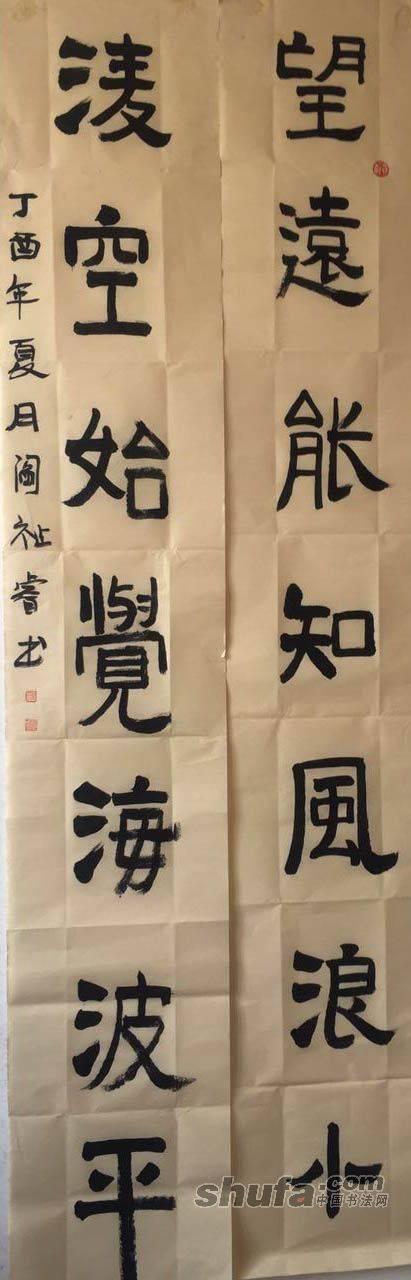 望遠能知風浪小
淩空始覺海波平
丁酉年夏月阎祉睿书
shufa.com
中国书法网